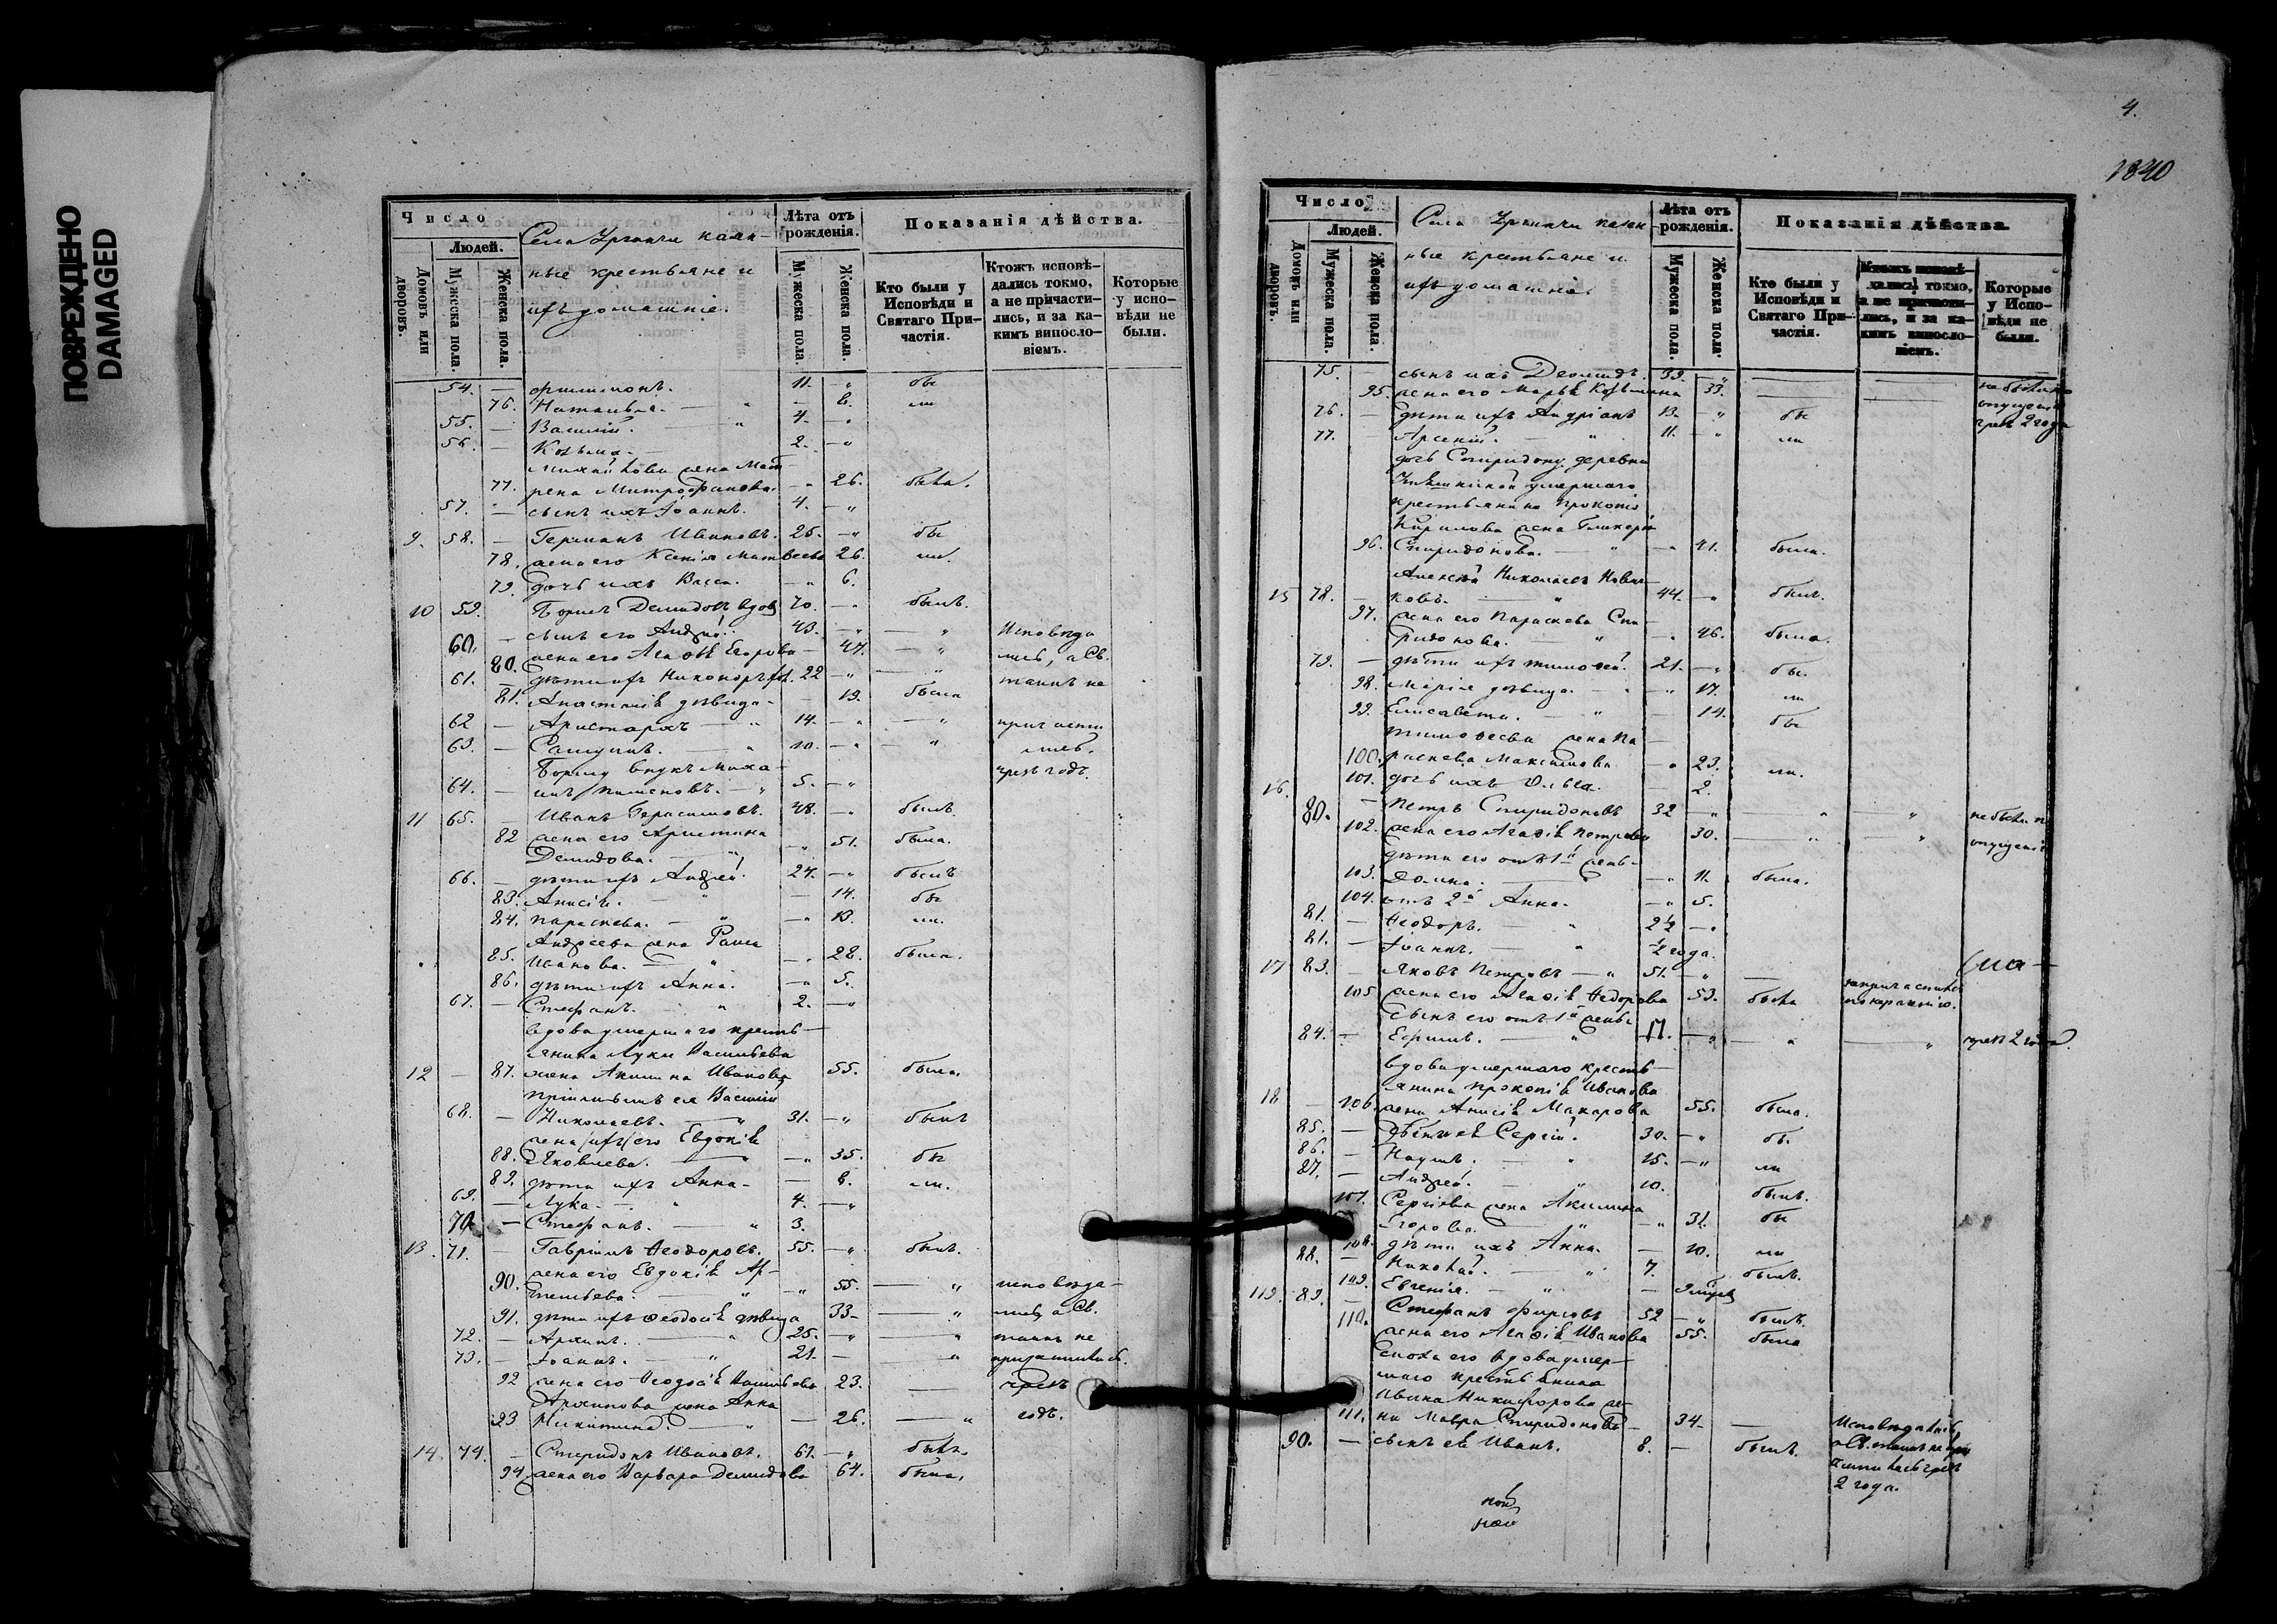 ПОВРЕЖДЕНО
DAMAGED
Число
Людей.
Домовъ или дворовъ.
Мужеска пола.
Женска пола.
Села
ные крестьяне и
ихъ домашніе.
Лѣта отъ рожденія.
Мужеска пола.
Женска пола.
Показанія дѣйства.
Кто были у Исповѣди и Святаго Причастія.
Ктожъ исповѣдались токмо, а не причастились, и за какимъ винословіемъ.
Которые у исповѣди не были.
54. — Филимонъ. 11. — бы
76. Наталья. — 8. ли
55. — Василій. 4. —
56. — Козьма. 2. —
Михайлова жена Мат-
77. рена Митрофанова. — 26. была.
57. — сынъ ихъ Іоаннъ. 4. —
9. 58. — Германъ Ивановъ. 25. — бы
78. жена его Ксенія Матвеева 26. ли.
79. дочь ихъ Васса. — 6.
10 59. Борисъ Демидовъ вдов 70. — былъ.
60. — сынъ его Андрей. 43. — Исповѣда
80. жена его Агафія Егорова — 47. — лись, а Св.
61. — дѣти ихъ Никоноръ 22 — таинъ не
81. Анастасія дѣвица — 19. была
62 — Аристархъ 14. — причасти
63. — Самуилъ. 10. — лись.
Борису внукъ Миха- чрезъ годъ.
64. — илъ Пименовъ. 5. —
11 65. — Иванъ Герасимовъ. 48. — былъ.
82 жена его Христина
Демидова. — 51. была.
66. — дѣти ихъ Андрей. 27. — былъ
83. Анисія. — 14. бы
84. Параскева. — 13. ли.
Андреева жена Раиса
85. Иванова. — 28. была.
86. дѣти ихъ Анна. — 5.
67. — Стефанъ. 2. —
вдова умершаго кресть-
янина Луки Васильева
12 — 87. жена Акилина Иванова 55. была.
пріимышъ ея Василій
68. — Николаевъ. 31. — былъ
жена его Евдокія
88. Яковлева. — 35. бы
89. дѣти ихъ Анна — 8. ли.
69. — Лука. 4. —
70 — Стефанъ. 3.
13. 71. — Гавріилъ Ѳеодоровъ. 55. — былъ.
жена его Евдокія Ар-
90. темьева. — 55. — исповѣда-
91. дѣти ихъ Ѳеодосія дѣвица 33 — лись, а Св.
72. — Архипъ. 25. — таинъ не
73. — Іоаннъ. 21. — причастились.
92 жена его Ѳеодосія Васильева 23. — чрезъ
Архипова жена Анна
93 Никитина. — 26. — годъ.
14. 74. — Спиридонъ Ивановъ. 61. — былъ.
94 жена его Варвара Демидова 64. была.
4.
1840
Число
Людей.
Домовъ или дворовъ.
Мужеска пола.
Женска пола.
Села
ные крестьяне и
ихъ домашніе.
Лѣта отъ рожденія.
Мужеска пола.
Женска пола.
Показанія дѣйства.
Кто были у Исповѣди и Святаго Причастія.
Ктожъ исповѣдались токмо, а не причастились, и за какимъ винословіемъ.
Которые у Исповѣди не были.
75. — сынъ ихъ Деомидъ. 39. — не были по
95. жена его Марья Козьмина 33. — опущенію
76. — дѣти ихъ Андріанъ 13. — бы чрезъ 2 года
77. — Арсеній. 11. — ли
дочь Спиридону деревни
умершаго
крестьянина Прокопія
Кирилова жена Гликерія
96. Спиридонова. — 41. была.
Алексѣй Николаевъ Нови-
15 78. — ковъ. 44. — былъ.
97. жена его Параскева Спи-
ридонова. — 46. была.
79. — дѣти ихъ Тимоѳей. 21. — бы.
98. Марія дѣвица. — 17. ли
99. Елисавета. — 14. бы
Тимоѳеева жена Па-
100. раскева Максимова — 23. ли.
101. дочь ихъ Ольга. — 2.
16. 80. — Петръ Спиридоновъ 32 — не были по
102. жена его Агафія Петрова 30. — опущенію
дѣти его отъ 1й жены
103. Домна. — 11. была.
104. отъ 2й Анна. — 5.
81. — Ѳеодоръ. 2½ —
81. — Іоаннъ. ½ года.
17 83. — Яковъ Петровъ 51. —
105 жена его Агафія Ѳедорова 53. была
сынъ его отъ 1й жены
84. — Ефимъ. 17. — чрезъ 2 года.
вдова умершаго кресть-
янина Прокопія Иванова
18 — 106. жена Анисія Макарова 55. была.
85. — дѣти ея Сергій. 30. — бы.
86. — Наумъ. 15. — ли
87. — Андрей. 10. былъ.
107. Сергіева жена Акилина
Егорова. — 31. бы
108. дѣти ихъ Анна. — 10. ли
88. — Николай. 7. былъ.
109. Евгенія. —
119. 89. — Стефанъ Фирсовъ 52 — былъ.
110. жена его Агафія Иванова 55. была
сноха его вдова умер-
шаго крестьянина
Ивана Никифорова же-
111. на Мавра Спиридонова — 34 — Исповѣдалась,
90. — сынъ ея Иванъ. 8. — былъ. а Св. таинъ не при
частилась чрезъ
2 года.